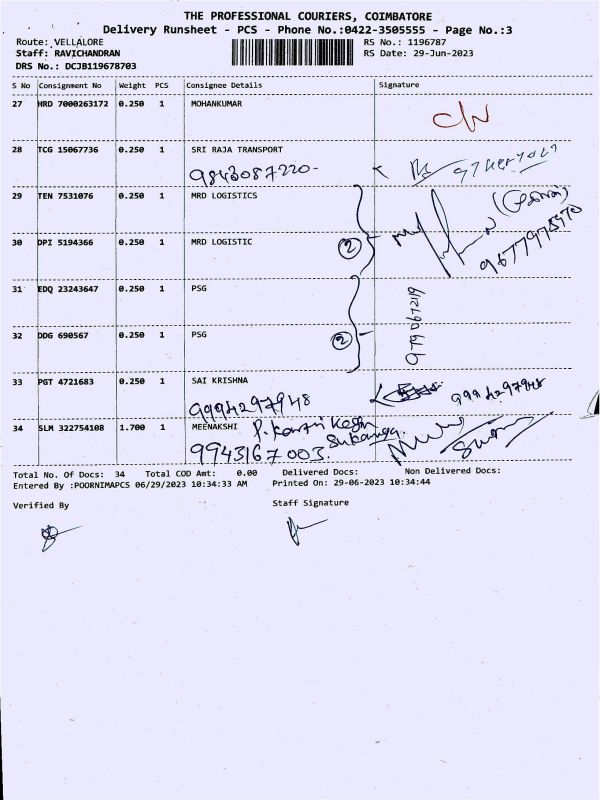 THE PROFESSIONAL COURIERS, COIMBATORE
Delivery Runsheet - PCS - Phone No.:0422-3505555 - Page No.:3
Route: VELLALORE RS No.: 1196787
Staff: RAVICHANDRAN RS Date: 29-Jun-2023
DRS No.: DCJB119678703
S No Consignment No Weight PCS Consignee Details Signature
27 HRD 7000263172 0.250 1 MOHANKUMAR
28 TCG 15067736 0.250 1 SRI RAJA TRANSPORT
9843087220-
29 TEN 7531076 0.250 1 MRD LOGISTICS
30 DPI 5194366 0.250 1 MRD LOGISTIC 2 9677975570
31 EDQ 23243647 0.250 1 PSG
32 DDG 690567 0.250 1 PSG 2
33 PGT 4721683 0.250 1 SAI KRISHNA
9994297948 9994297948
34 SLM 322754108 1.700 1 MEENAKSHI
9943167003.
Total No. Of Docs: 34 Total COD Amt: 0.00 Delivered Docs: Non Delivered Docs:
Entered By :POORNIMAPCS 06/29/2023 10:34:33 AM Printed On: 29-06-2023 10:34:44
Verified By Staff Signature